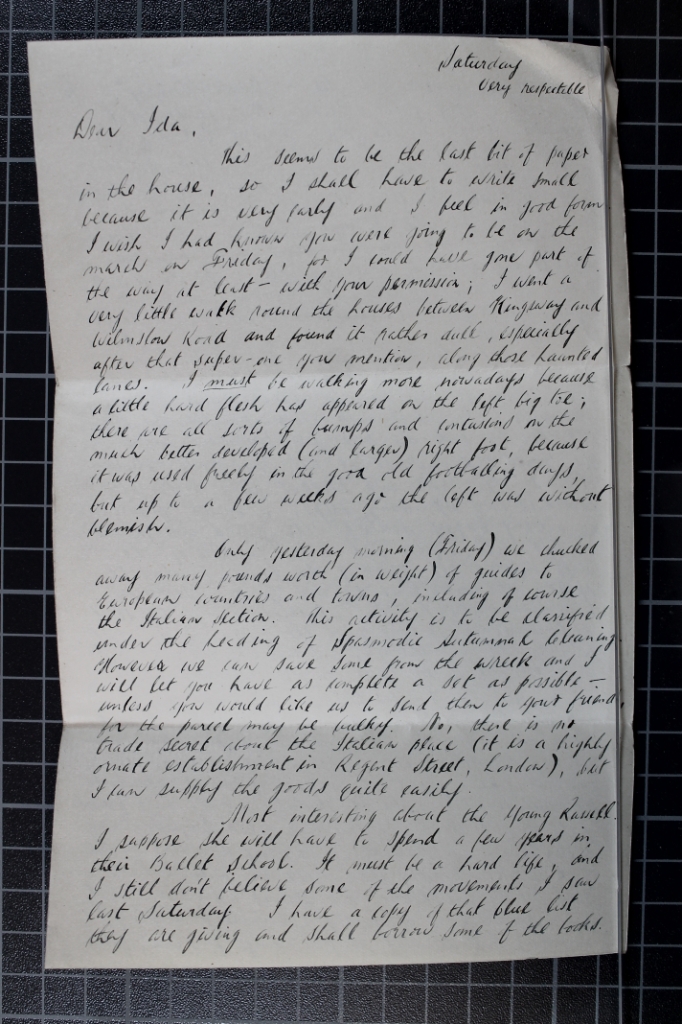 Saturday
Very respectable
Dear Ida,
This seems to be the last bit of paper
in the house, so I shall have to write small
because it is very early and I feel in good form.
I wish I had known you were going to be on the
march on Friday, for I could have gone part of
the way at least – with your permission; I went a
very little walk round the houses between Kingsway and
Wilmslow Road and found it rather dull, especially
after that super-one you mention, along those haunted
lanes. I must be walking more nowadays because
a little hard flesh has appeared on the left big toe;
there are all sorts of bumps and contusions on the
much better developed (and larger) right foot, because
it was used freely in the good old footballing days,
but up to a few weeks ago the left was without
blemish.
Only yesterday morning (Friday) we chucked
away many pounds worth (in weight) of guides to
European countries and towns, including of course
the Italian section. This activity is to be classified
under the heading of Spasmodic Autumnal Cleaning.
However we can save some from the wreck and I
will let you have as complete a set as possible –
unless you would like us to send them to your friend,
for the parcel may be bulky. No, there is no
trade secret about the Italian place (it is a highly
ornate establishment in Regent Street, London), but
I can supply the goods quite easily.
Most interesting about the Young Russell.
I suppose she will have to spend a few years in
their Ballet School. It must be a hard life, and
I still don't believe some of the movements I saw
last Saturday. I have a copy of that blue list
they are giving and shall borrow some of the books.